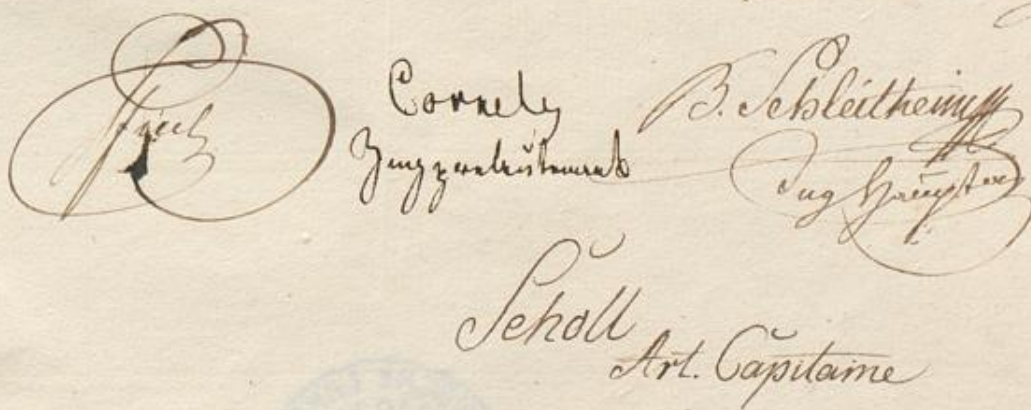 Cornely
Zeugpremleutenant
B. Schleitheim
Ing Hauptm
Scholl
Art. Capitaine